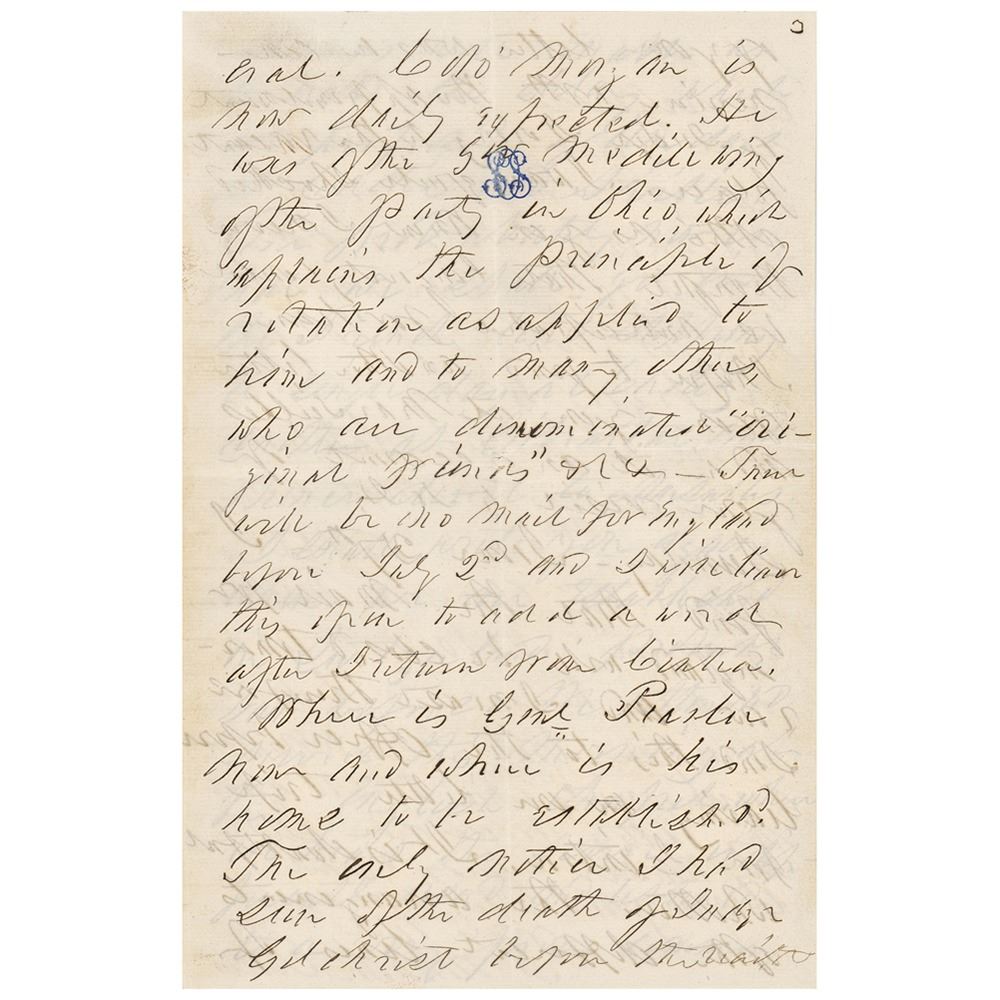 eral. Colo' Morgan is
now daily expected. He
was of the Medill wing
of the Party in Ohio which
explains the principle of
rotation as applied to
him and to many others,
who are denominated "ori-
ginal friends" &c &c — There
will be no mail for England
before July 2nd and I will leave
this open to add a word
after I return from Cintra.
Where is Genl Peaslee
now and where is his
home to be established?
The only notice I had
seen of the death of Judge
Gilchrist before the